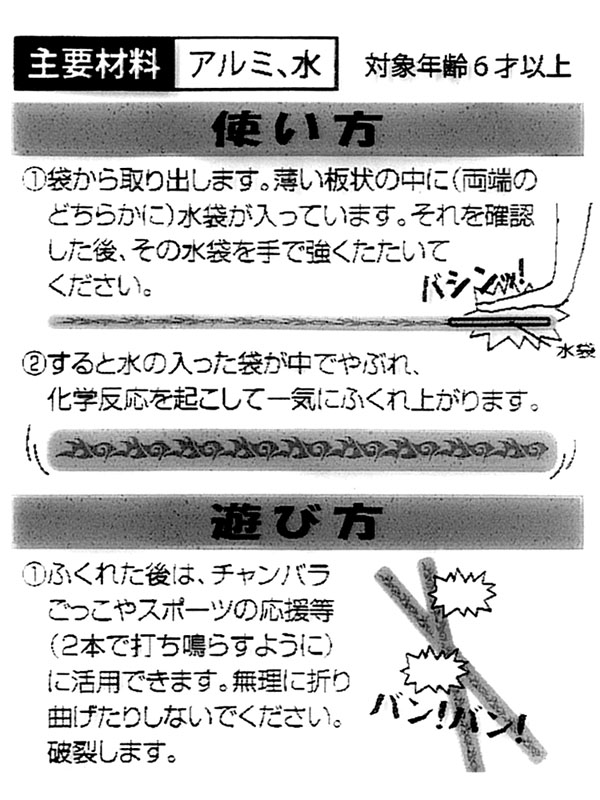 主要材料 アルミ、水 対象年齢6才以上
使い方
①袋から取り出します。薄い板状の中に(両端の
どちらかに)水袋が入っています。それを確認
した後、その水袋を手で強くたたいて
ください。
バシンッ!
水袋
②すると水の入った袋が中でやぶれ、
化学反応を起こして一気にふくれ上がります。
遊び方
①ふくれた後は、チャンバラ
ごっこやスポーツの応援等
(2本で打ち鳴らすように)
に活用できます。無理に折り
曲げたりしないでください。
破裂します。
バン!バン!